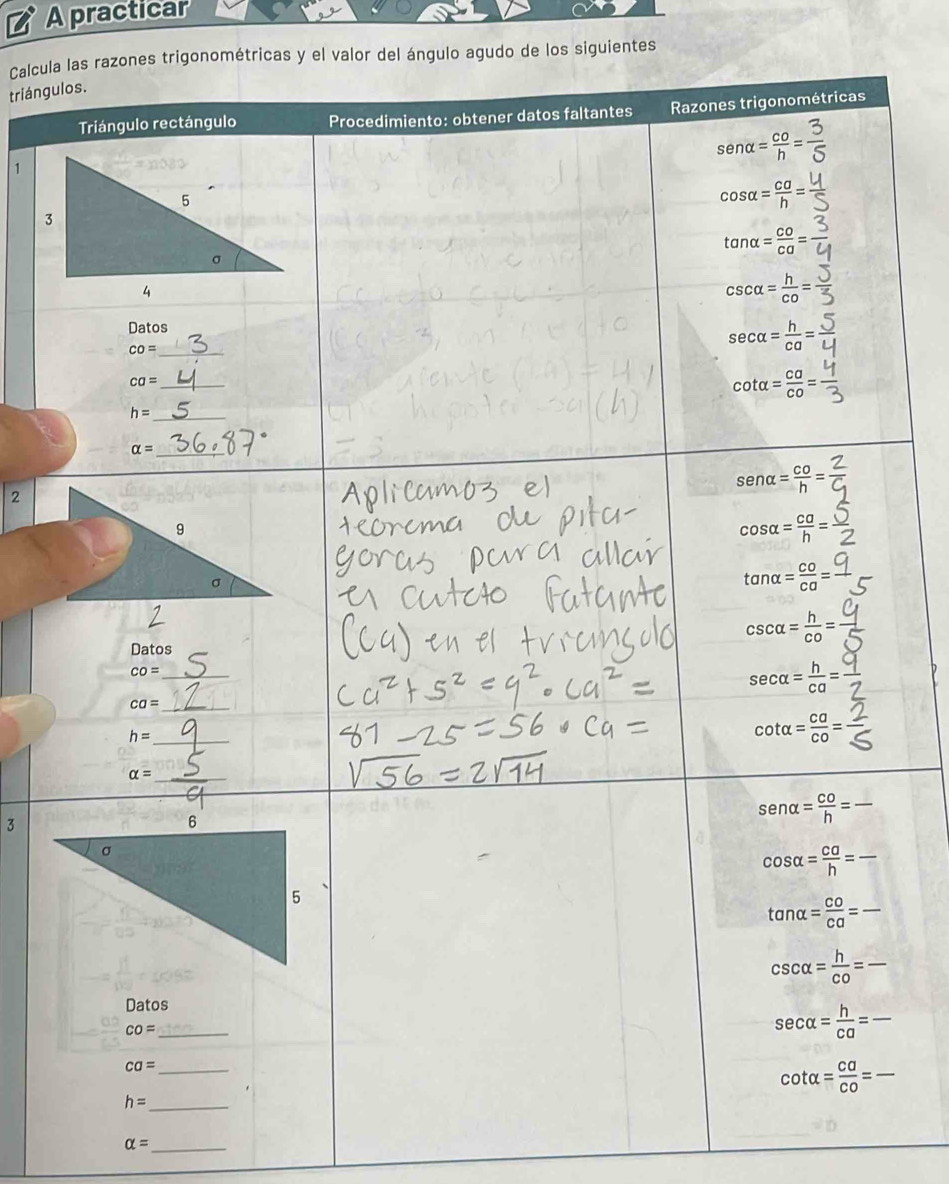 A practicar
Calcula las razones trigonométricas y el valor del ángulo agudo de los siguientes
triángulos.
Triángulo rectángulo
Procedimiento: obtener datos faltantes
Razones trigonométricas
1
3
5
σ
4
Datos
co = 3
ca = 4
h = 5
α = 36.87°
senα = co/h = 3/5
cosα = ca/h = 4/5
tanα = co/ca = 3/4
cscα = h/co = 5/3
secα = h/ca = 5/4
cotα = ca/co = 4/3
2
9
σ
2
Datos
co = 5
ca = 2
h = 9
α = 5/9
Aplicamos el
teorema de pita-
goras para allar
el cateto Fatante
(Ca) en el triangulo
Ca² + 5² = 9² • Ca² =
81 - 25 = 56 • Ca =
√56 = 2√14
senα = co/h = 2/9
cosα = ca/h = 5/2
tanα = co/ca = 9/5
cscα = h/co = 9/5
secα = h/ca = 9/2
cotα = ca/co = 2/5
3
6
σ
5
Datos
co =
ca =
h =
α =
senα = co/h = —
cosα = ca/h = —
tanα = co/ca = —
cscα = h/co = —
secα = h/ca = —
cotα = ca/co = —